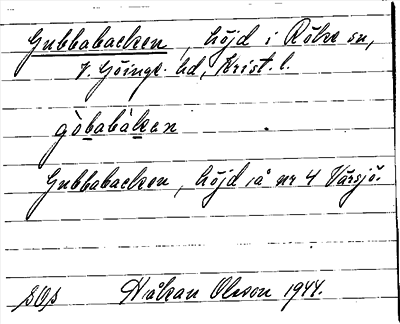 Gubbabacken, höjd i Röke sn,
V. Göinge hd, Krist. l.
gòbabàkan
Gubbabacken, höjd å nr 4 Vårsjö.
Håkan Olsson 1944.